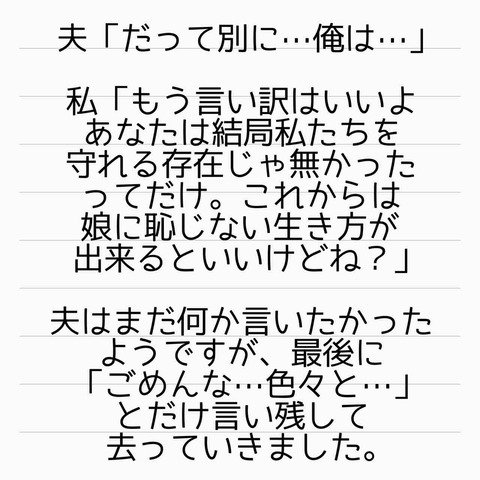 夫「だって別に…俺は…」
私「もう言い訳はいいよ
あなたは結局私たちを
守れる存在じゃ無かった
ってだけ。これからは
娘に恥じない生き方が
出来るといいけどね？」
夫はまだ何か言いたかった
ようですが、最後に
「ごめんな…色々と…」
とだけ言い残して
去っていきました。